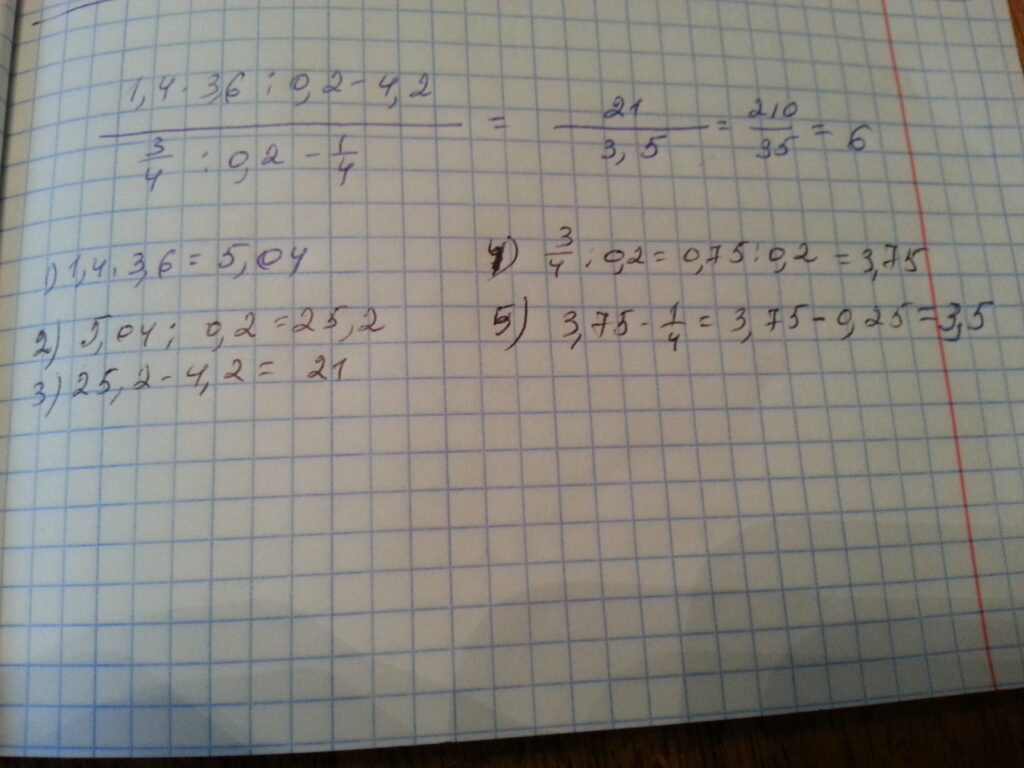 1,4 · 3,6 : 0,2 - 4,2 / 3/4 : 0,2 - 1/4 = 21 / 3,5 = 210 / 35 = 6
1) 1,4 · 3,6 = 5,04
2) 5,04 : 0,2 = 25,2
3) 25,2 - 4,2 = 21
4) 3/4 : 0,2 = 0,75 : 0,2 = 3,75
5) 3,75 - 1/4 = 3,75 - 0,25 = 3,5